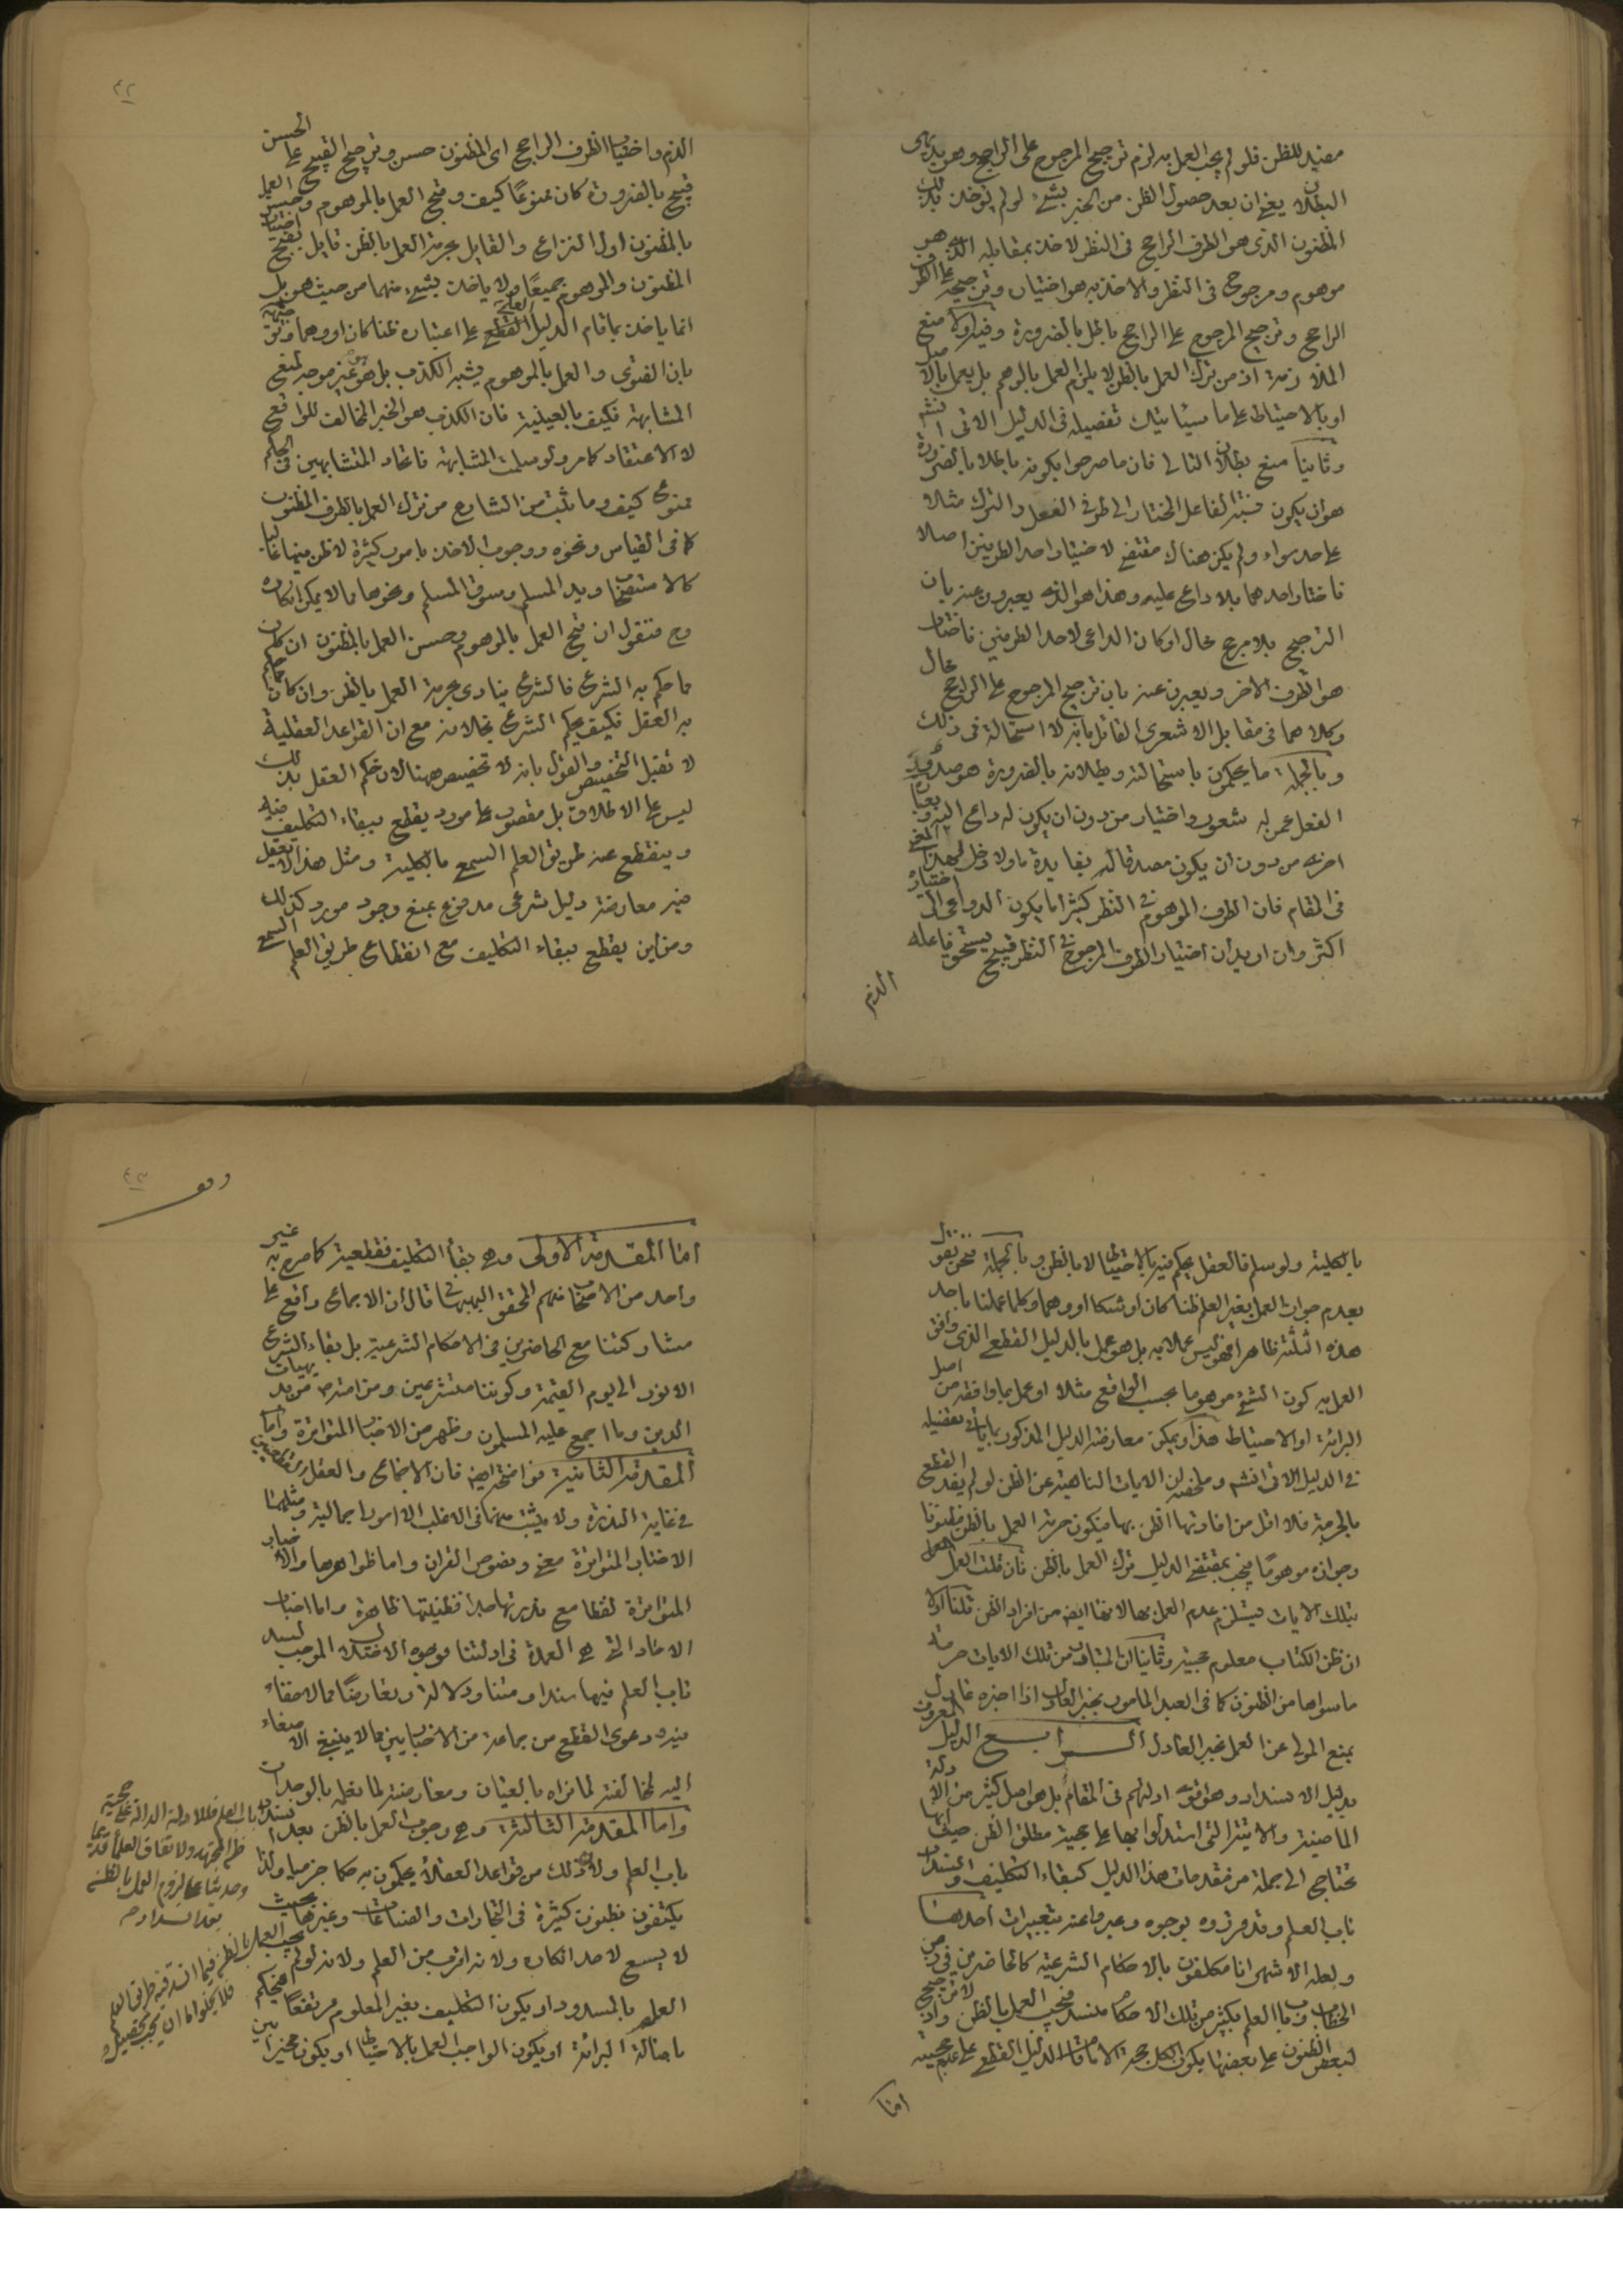 مفيد للظن فلو لم يجب العمل به لزم ترجيح المرجوح على الراجح وهو بديهى
البطلان يعنى ان بعد حصول الظن من الخبر بشئ لو لم يؤخذ بذلك
المظنون الذى هو الطرف الراجح فى النظر لاخذ بمقابله الذى هو
موهوم ومرجوح فى النظر والاخذ به هو اختياره وترجيحه على الطرف
الراجح وترجيح المرجوح على الراجح باطل بالضرورة وفيه اولا منع
الملازمة اذ من ترك العمل بالظن لا يلزم العمل بالوهم بل يعمل بالاصل
او بالاحتياط على ما سيأتيك تفصيله فى الدليل الاتى انشم
وثانيا منع بطلان التالى فان ما صرحوا بكونه باطلا بالضرورة
هو ان يكون نسبة الفاعل المختار الى طرفى الفعل والترك مثلا
على حد سواء ولم يكن هناك مقتضى لاختيار احد الطرفين اصلا
فاختار احدهما بلا داعى عليه وهذا هو الذى يعبرون عنه بان
الترجيح بلا مرجح محال او كان الداعى لاحد الطرفين فاختار
هو الطرف الاخر ويعبرون عنه بان ترجيح المرجوح على الراجح محال
وكلاهما فى مقابل الاشعرى القائل بانه لا استحالة فى ذلك
وبالجملة ما يحكمون باستحالته وبطلانه بالضرورة هو صدور
الفعل عمن له شعور واختيار من دون ان يكون له داعى اليه وبعبارة
اخرى من دون ان يكون مصدقا له بفايدة ما ولا دخل لهذا المعنى
فى المقام فان الطرف الموهوم فى النظر كثيرا ما يكون الدواعى الى اختياره
اكثر وان اريد ان اختيار الطرف المرجوح فى النظر قبيح يستحق فاعله
الذم
٤٢
الذم واختيار الطرف الراجح اى المظنون حسن وترجيح القبيح على الحسن
قبيح بالضرورة كان ممنوعا كيف وقبح العمل بالموهوم وحسن العمل
بالمظنون اول النزاع والقايل بحرمة العمل بالظن قايل بقبح اختيار
المظنون والموهوم جميعا ولا ياخذ بشئ منهما من حيث هو بل
انما ياخذ بما قام الدليل القطعى العلمى على اعتباره ظنا كان او وهما
بان الفتوى والعمل بالموهوم يشبه الكذب بل هو هو غير موجه لمنع
المشابهة فكيف بالعينية فان الكذب هو الخبر المخالف للواقع
لا الاعتقاد كما مر ولو سلمت المشابهة فاتحاد المتشابهين فى الحكم
ممنوع كيف وما ثبت من الشارع من ترك العمل بالطرف المظنون
كما فى القياس ونحوه ووجوب الاخذ بامور كثيرة لا ظن فيها غالبا
كالاستصحاب ويد المسلم وسوق المسلم ونحوها مما لا يمكن انكاره
وح فنقول ان قبح العمل بالموهوم وحسن العمل بالمظنون ان كان
مما حكم به الشرع فالشرع ينادى بحرمة العمل بالظن وان كان مما حكم
به العقل فكيف يحكم الشرع بخلافه مع ان القواعد العقلية
لا تقبل التخصيص والقول بانه لا تخصيص ههنا لان حكم العقل بذلك
ليس على الاطلاق بل مقصور على مورد يقطع ببقاء التكليف فيه
وينقطع عنه طريق العلم السمع بالكلية ومثل هذا لا يعقل
فيه معارضة دليل شرعى مدفوع بمنع وجود مورد كذلك
ومن اين يقطع ببقاء التكليف مع انقطاع طريق العلم السمع
بالكلية ولو سلم فالعقل يحكم فيه بالاحتياط لا بالظن وبالجملة فنحن نقول
بعدم جواز العمل بغير العلم ظنا كان او شكا او وهما وكلما عملنا باحد
هذه الثلثة ظاهرا فهو ليس عملا به بل هو عمل بالدليل القطعى الذى وافق
العمل به كون الشئ موهوما بحسب الواقع مثلا او عمل بما وافقه من اصل
البرائة او الاحتياط هذا ويمكن معارضة الدليل المذكور بما ياتى تفصيله
فى الدليل الاتى انشم وملخصه ان الايات الناهية عن الظن لو لم يفد القطع
بالحرمة فلا اقل من افادتها الظن بها فيكون حرمة العمل بالظن مظنونا
وجوازه موهوما فيجب بمقتضى الدليل ترك العمل بالظن فان قلت العمل
بتلك الايات يستلزم عدم العمل بها لانها ايضا من افراد الظن قلنا اولا
ان ظن الكتاب معلوم حجيته وثانيا ان المتبادر من تلك الايات حرمة
ما سواها من الظنون كما فى العبد المامور بخبر العادل اذا اخبره عادل
بمنع المولى عن العمل بخبر العادل الرابع الدليل المعروف
بدليل الانسداد وهو اقوى ادلتهم فى المقام بل هو اصل كثير من الادلة
الماضية والاتية التى استدلوا بها على حجية مطلق الظن حيث انها
تحتاج الى جملة من مقدمات هذا الدليل كبقاء التكليف وانسداد
باب العلم وقد قرروه بوجوه وعبروا عنه بتعبيرات احدها
ولعله الاشهر انا مكلفون بالاحكام الشرعية كالحاضرين فى زمن
الخطاب وباب العلم بكثير من تلك الاحكام منسد فيجب العمل بالظن واذ لا ترجيح
لبعض الظنون على بعضها يكون الكل حجة الا ما قام الدليل القطعى على عدم حجيته
اما
٤٣
وقف
اما المقدمة الاولى وهى بقاء التكليف فقطعية كما صرح به غير
واحد من الاصحاب منهم المحقق البهبهانى قال ان الاجماع واقع على
مشاركتنا مع الحاضرين فى الاحكام الشرعية بل بقاء الشرع
الانور الى يوم القيمة وكوننا متشرعين ومن امته ص من بديهيات
الدين وما اجمع عليه المسلمون وظهر من الاخبار المتواترة واما
المقدمة الثانية فواضحة ايضا فان الاجماع والعقل القطعيين
فى غاية الندرة ولا يثبت منهما فى الاغلب الا امور اجمالية ومثلهما
الاخبار المتواترة معنى ونصوص القران واما ظواهرها والاخبار
المتواترة لفظا مع ندرتها جدا فظنيتها ظاهرة واما اخبار
الاحاد التى هى العمدة فى ادلتنا فوجوه الاختلال الموجب لسد
باب العلم فيها سندا ومتنا ودلالة وتعارضا مما لا خفاء
فيه ودعوى القطع من جماعة من الاخباريين مما لا ينبغى الاصغاء
اليه لمخالفته لما نراه بالعيان ومعارضته لما نعلمه بالوجدان
واما المقدمة الثالثة وهى وجوب العمل بالظن بعد انسداد
باب العلم ولان ذلك من قواعد العقلاء يحكمون به حكما جزميا ولذا
يكتفون بظنون كثيرة فى التجارات والصناعات وغيرها بحيث
لا يسع لاحد انكاره ولانه اقرب من العلم ولانه لو لم يجب العمل بالظن فيما انسد فيه طريق العلم
العلم بالمسدود او يكون التكليف بغير المعلوم مرتفعا فيحكم
باصالة البرائة او يكون الواجب العمل بالاحتياط او يكون مخيرا بين
باب العلم فللادلة الدالة على حجية
ظن المجتهد ولاتفاق العلماء قديما
وحديثا على لزوم العمل بالظن
بعد انسداده
فلا يخلو اما ان يجب تحصيل